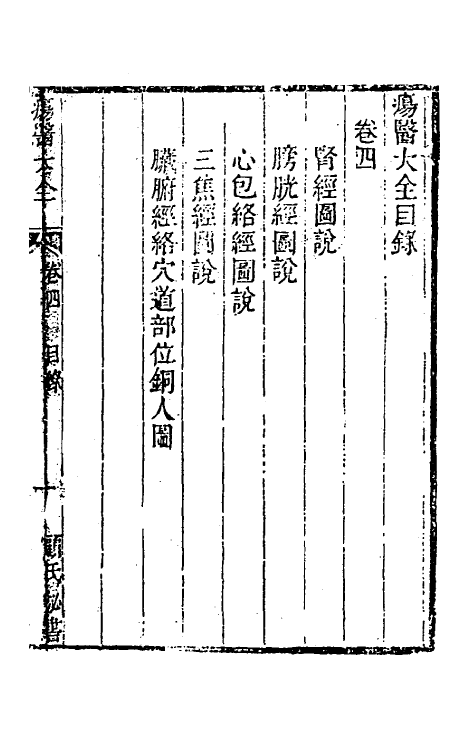 瘍醫大全目錄
卷四
腎經圖說
膀胱經圖說
心包絡經圖說
三焦經圖說
臟腑經絡穴道部位銅人圖
瘍醫大全
卷四
目錄
一
顧氏秘書